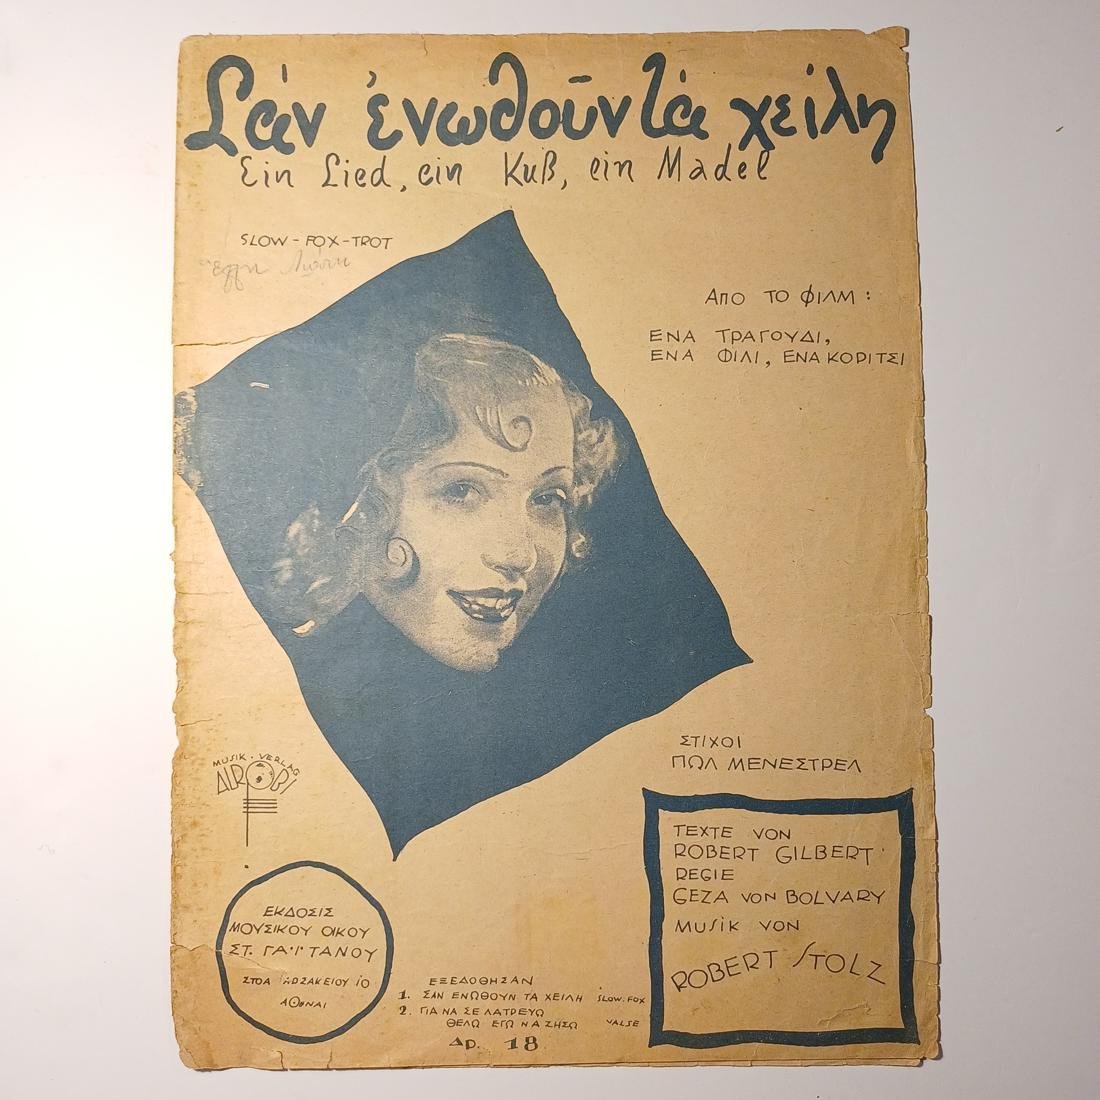 Σάν ἑνωθοῦν τά χείλη
Ein Lied, ein Kuß, ein Madel
SLOW - FOX - TROT
ΑΠΟ ΤΟ ΦΙΛΜ :
ΕΝΑ ΤΡΑΓΟΥΔΙ,
ΕΝΑ ΦΙΛΙ, ΕΝΑ ΚΟΡΙΤΣΙ
ΣΤΙΧΟΙ
ΠΩΛ ΜΕΝΕΣΤΡΕΛ
MUSIK · VERLAG
ALROBI
TEXTE VON
ROBERT GILBERT
REGIE
GEZA VON BOLVARY
MUSIK VON
ROBERT STOLZ
ΕΚΔΟΣΙΣ
ΜΟΥΣΙΚΟΥ ΟΙΚΟΥ
ΣΤ. ΓΑΪΤΑΝΟΥ
ΣΤΟΑ ΑΡΣΑΚΕΙΟΥ 10
ΑΘΗΝΑΙ
ΕΞΕΔΟΘΗΣΑΝ
1. ΣΑΝ ΕΝΩΘΟΥΝ ΤΑ ΧΕΙΛΗ SLOW. FOX
2. ΓΙΑ ΝΑ ΣΕ ΛΑΤΡΕΥΩ
ΘΕΛΩ ΕΓΩ ΝΑ ΖΗΣΩ VALSE
Δρ. 18